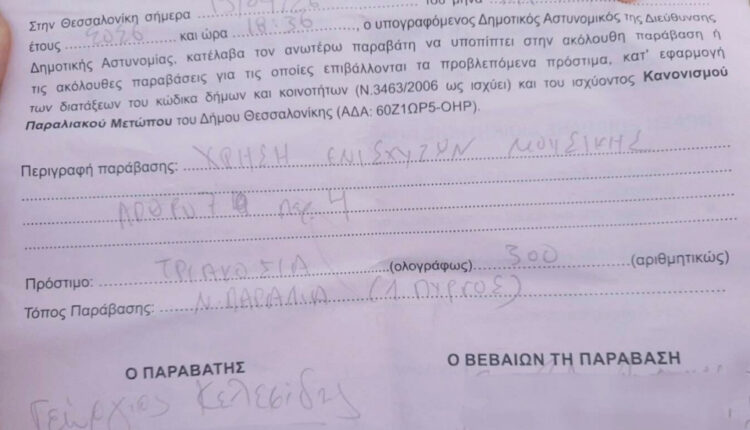 Στην Θεσσαλονίκη σήμερα
έτους 2026 και ώρα 18:36, ο υπογραφόμενος Δημοτικός Αστυνομικός της Διεύθυνσης
Δημοτικής Αστυνομίας, κατέλαβα τον ανωτέρω παραβάτη να υποπίπτει στην ακόλουθη παράβαση ή
τις ακόλουθες παραβάσεις για τις οποίες επιβάλλονται τα προβλεπόμενα πρόστιμα, κατ' εφαρμογή
των διατάξεων του κώδικα δήμων και κοινοτήτων (Ν.3463/2006 ως ισχύει) και του ισχύοντος Κανονισμού
Παραλιακού Μετώπου του Δήμου Θεσσαλονίκης (ΑΔΑ: 60Ζ1ΩΡ5-ΟΗΡ).
Περιγραφή παράβασης: ΧΡΗΣΗ ΕΝΙΣΧΥΤΩΝ ΜΟΥΣΙΚΗΣ
ΑΡΘΡΟ 7 παρ. 4
Πρόστιμο: ΤΡΙΑΚΟΣΙΑ (ολογράφως) 300 (αριθμητικώς)
Τόπος Παράβασης: Ν. ΠΑΡΑΛΙΑ (Λ. ΠΥΡΓΟΣ)
Ο ΠΑΡΑΒΑΤΗΣ Ο ΒΕΒΑΙΩΝ ΤΗ ΠΑΡΑΒΑΣΗ
Γεώργιος Κελεσίδης